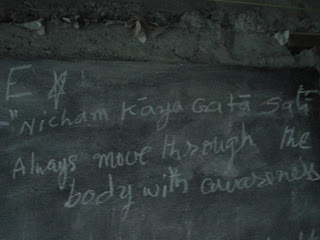 E
"Nicham Kāya Gatā Sati
Always move through the
body with awareness